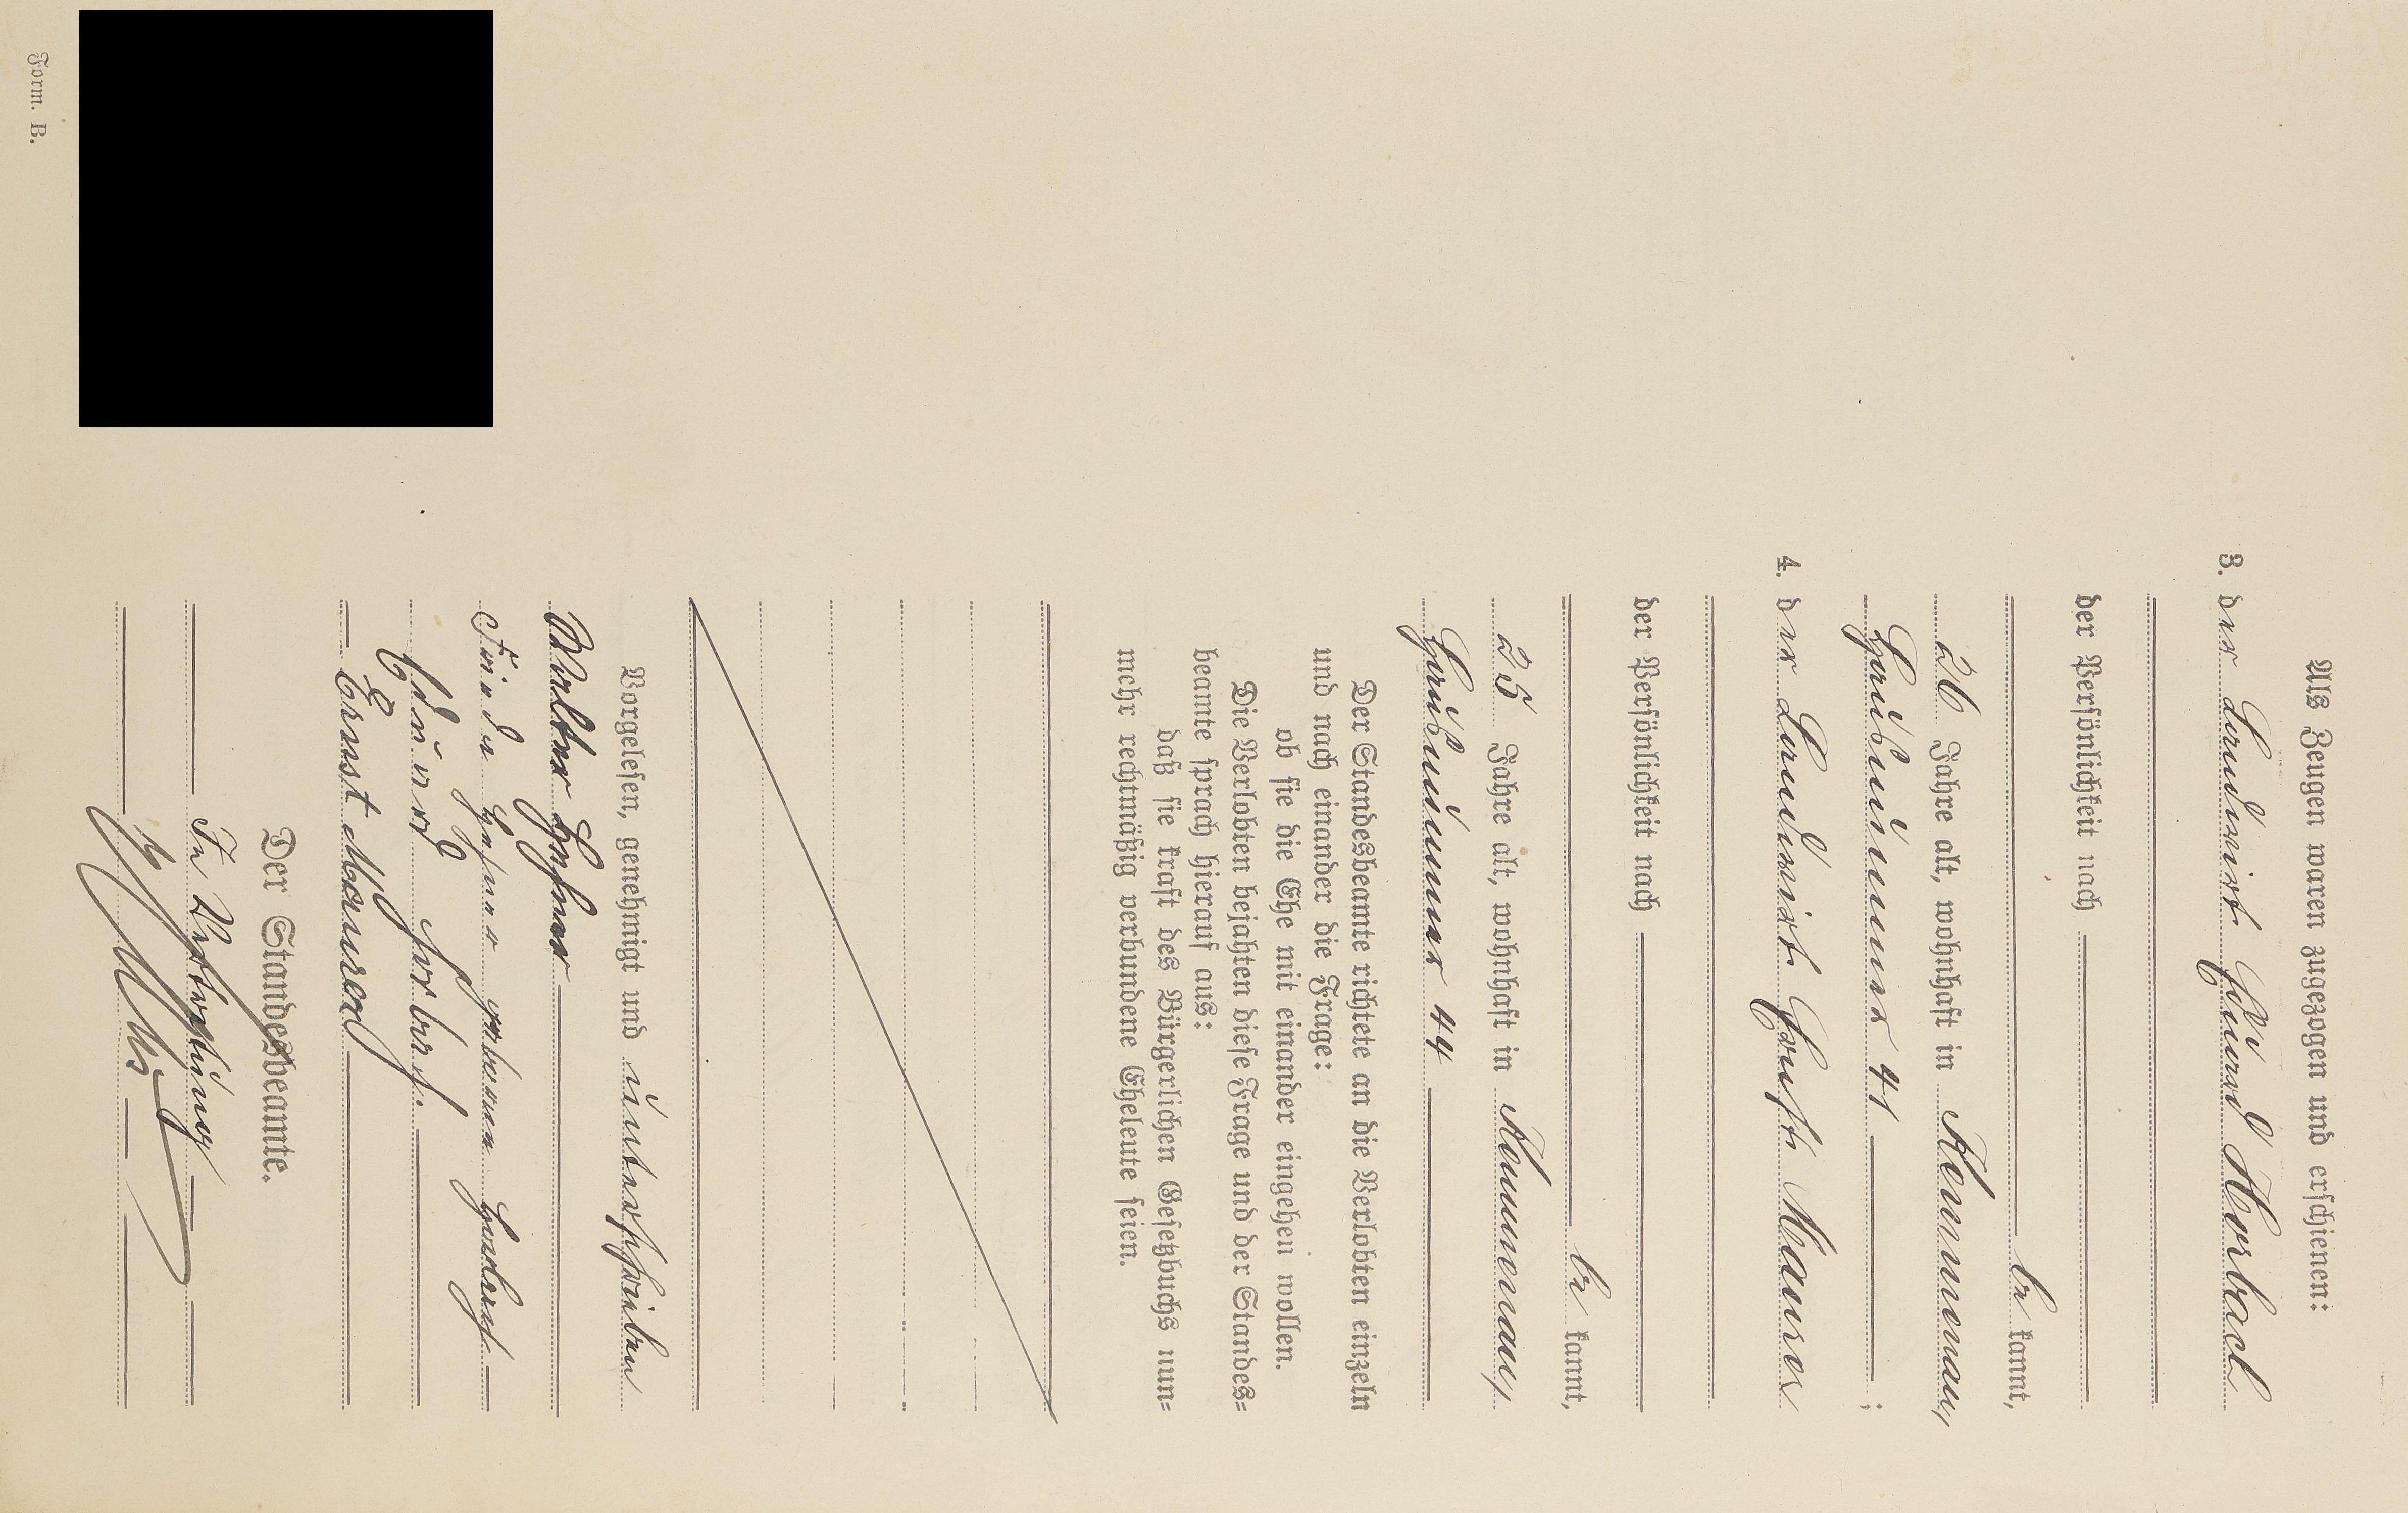 Als Zeugen waren zugezogen und erschienen:
3. der Landwirt Eduard Horbach
der Persönlichkeit nach
be kannt,
26 Jahre alt, wohnhaft in Kemmenau,
Hausnummer 41
;
4. der Landwirt Ernst Maurer
der Persönlichkeit nach
be kannt,
25 Jahre alt, wohnhaft in Kemmenau,
Hausnummer 44
Der Standesbeamte richtete an die Verlobten einzeln
und nach einander die Frage:
ob sie die Ehe mit einander eingehen wollen.
Die Verlobten bejahten diese Frage und der Standes=
beamte sprach hierauf aus:
daß sie kraft des Bürgerlichen Gesetzbuchs nun=
mehr rechtmäßig verbundene Eheleute seien.
Vorgelesen, genehmigt und unterschrieben
Hafner
Hafner geborene
Eduard Horbach.
Ernst Maurer
Der Standesbeamte.
In Vertretung
Form. B.